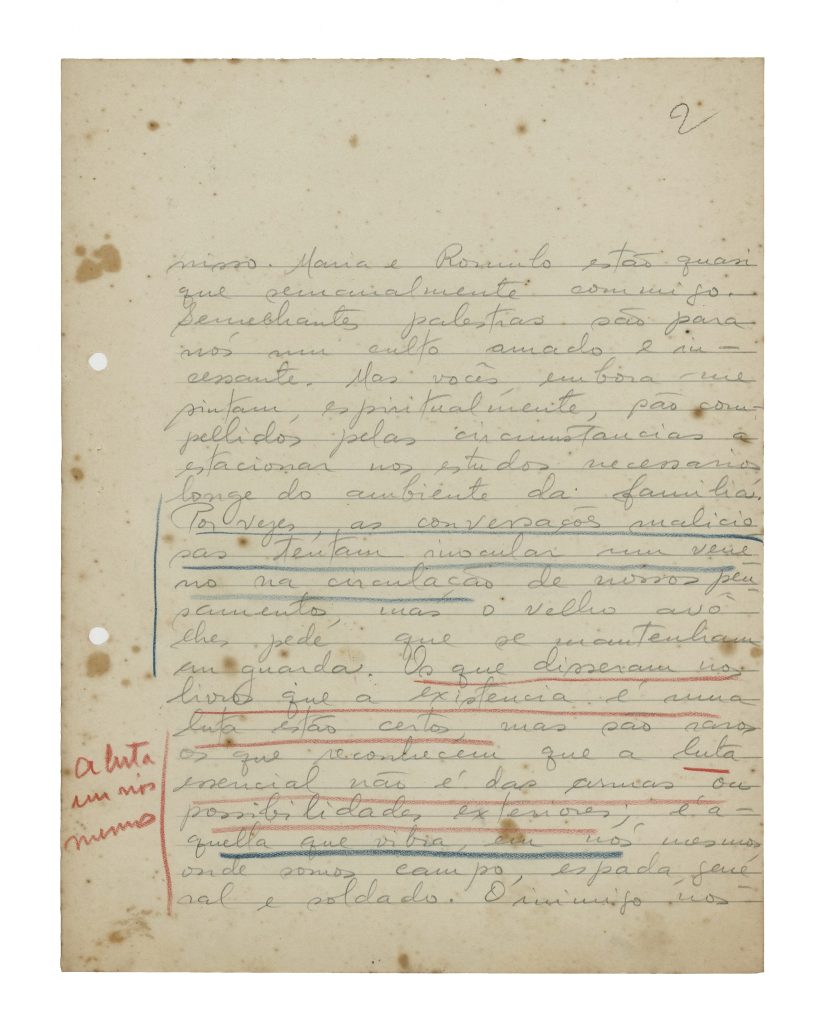 2
nisso. Maria e Romulo estão quasi
que semanalmente commigo.
Semelhantes palestras são para
nós um culto amado e in-
cessante. Mas vocês, embora me
sintam, espiritualmente, são com-
pellidos pelas circumstancias a
estacionar nos estudos necessarios
longe do ambiente da familia.
Por vezes, as conversações malicio
sas tentam inocular um vene
no na circulação de nossos pen
samentos, mas o velho avô
lhes pede que se mantenham
em guarda. Os que disseram nos
livros que a existencia é uma
luta estão certos, mas são raros
os que reconhecem que a luta
essencial não é das armas ou
possibilidades exteriores; é a-
quella que vibra, em nós mesmos
onde somos campo, espada, gene
ral e soldado. O inimigo nos-
a luta
em nós
mesmos